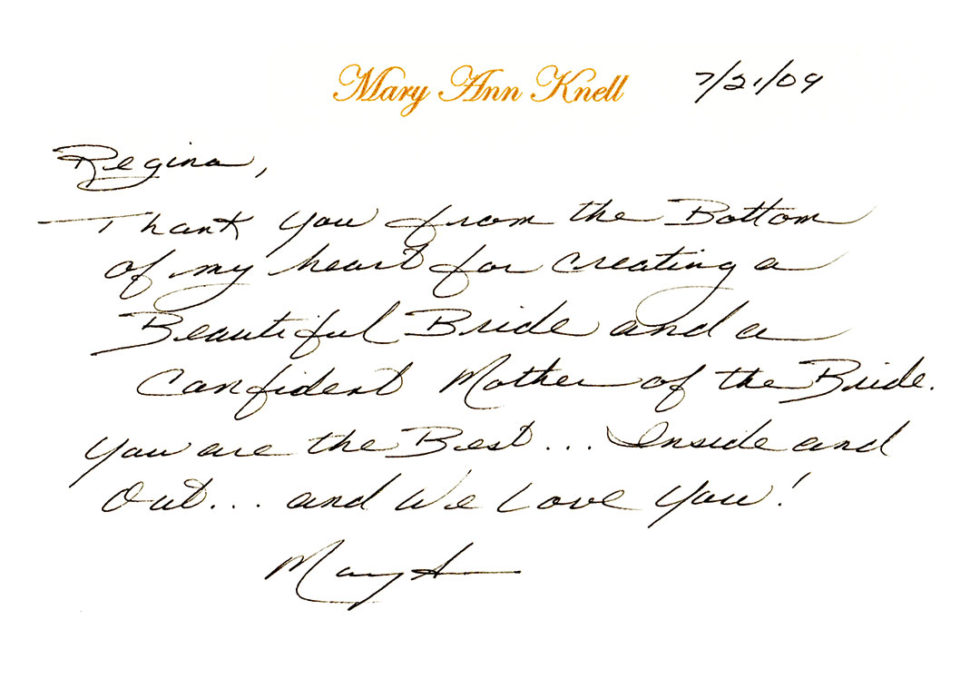 Mary Ann Knell 7/21/09
Regina,
Thank you from the Bottom
of my heart for creating a
Beautiful Bride and a
Confident Mother of the Bride.
You are the Best... Inside and
Out... and We Love You!
Mary A